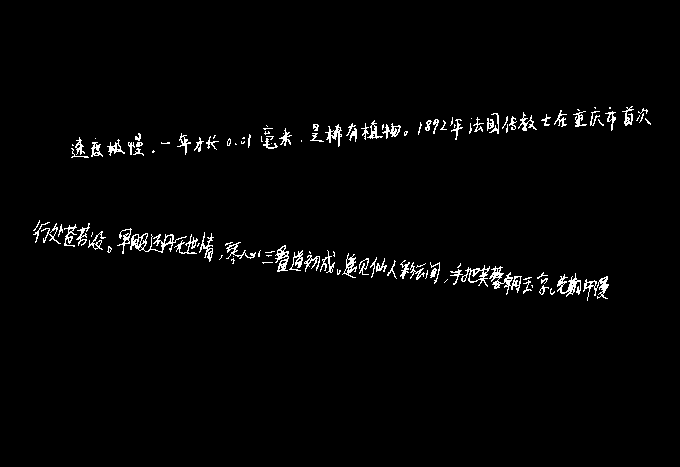 速度极慢，一年才长0.01毫米，是稀有植物。1892年法国传教士在重庆市首次
行处苍苔没。早服还丹无世情，琴心三叠道初成。遥见仙人彩云间，手把芙蓉朝玉京。先期汗漫